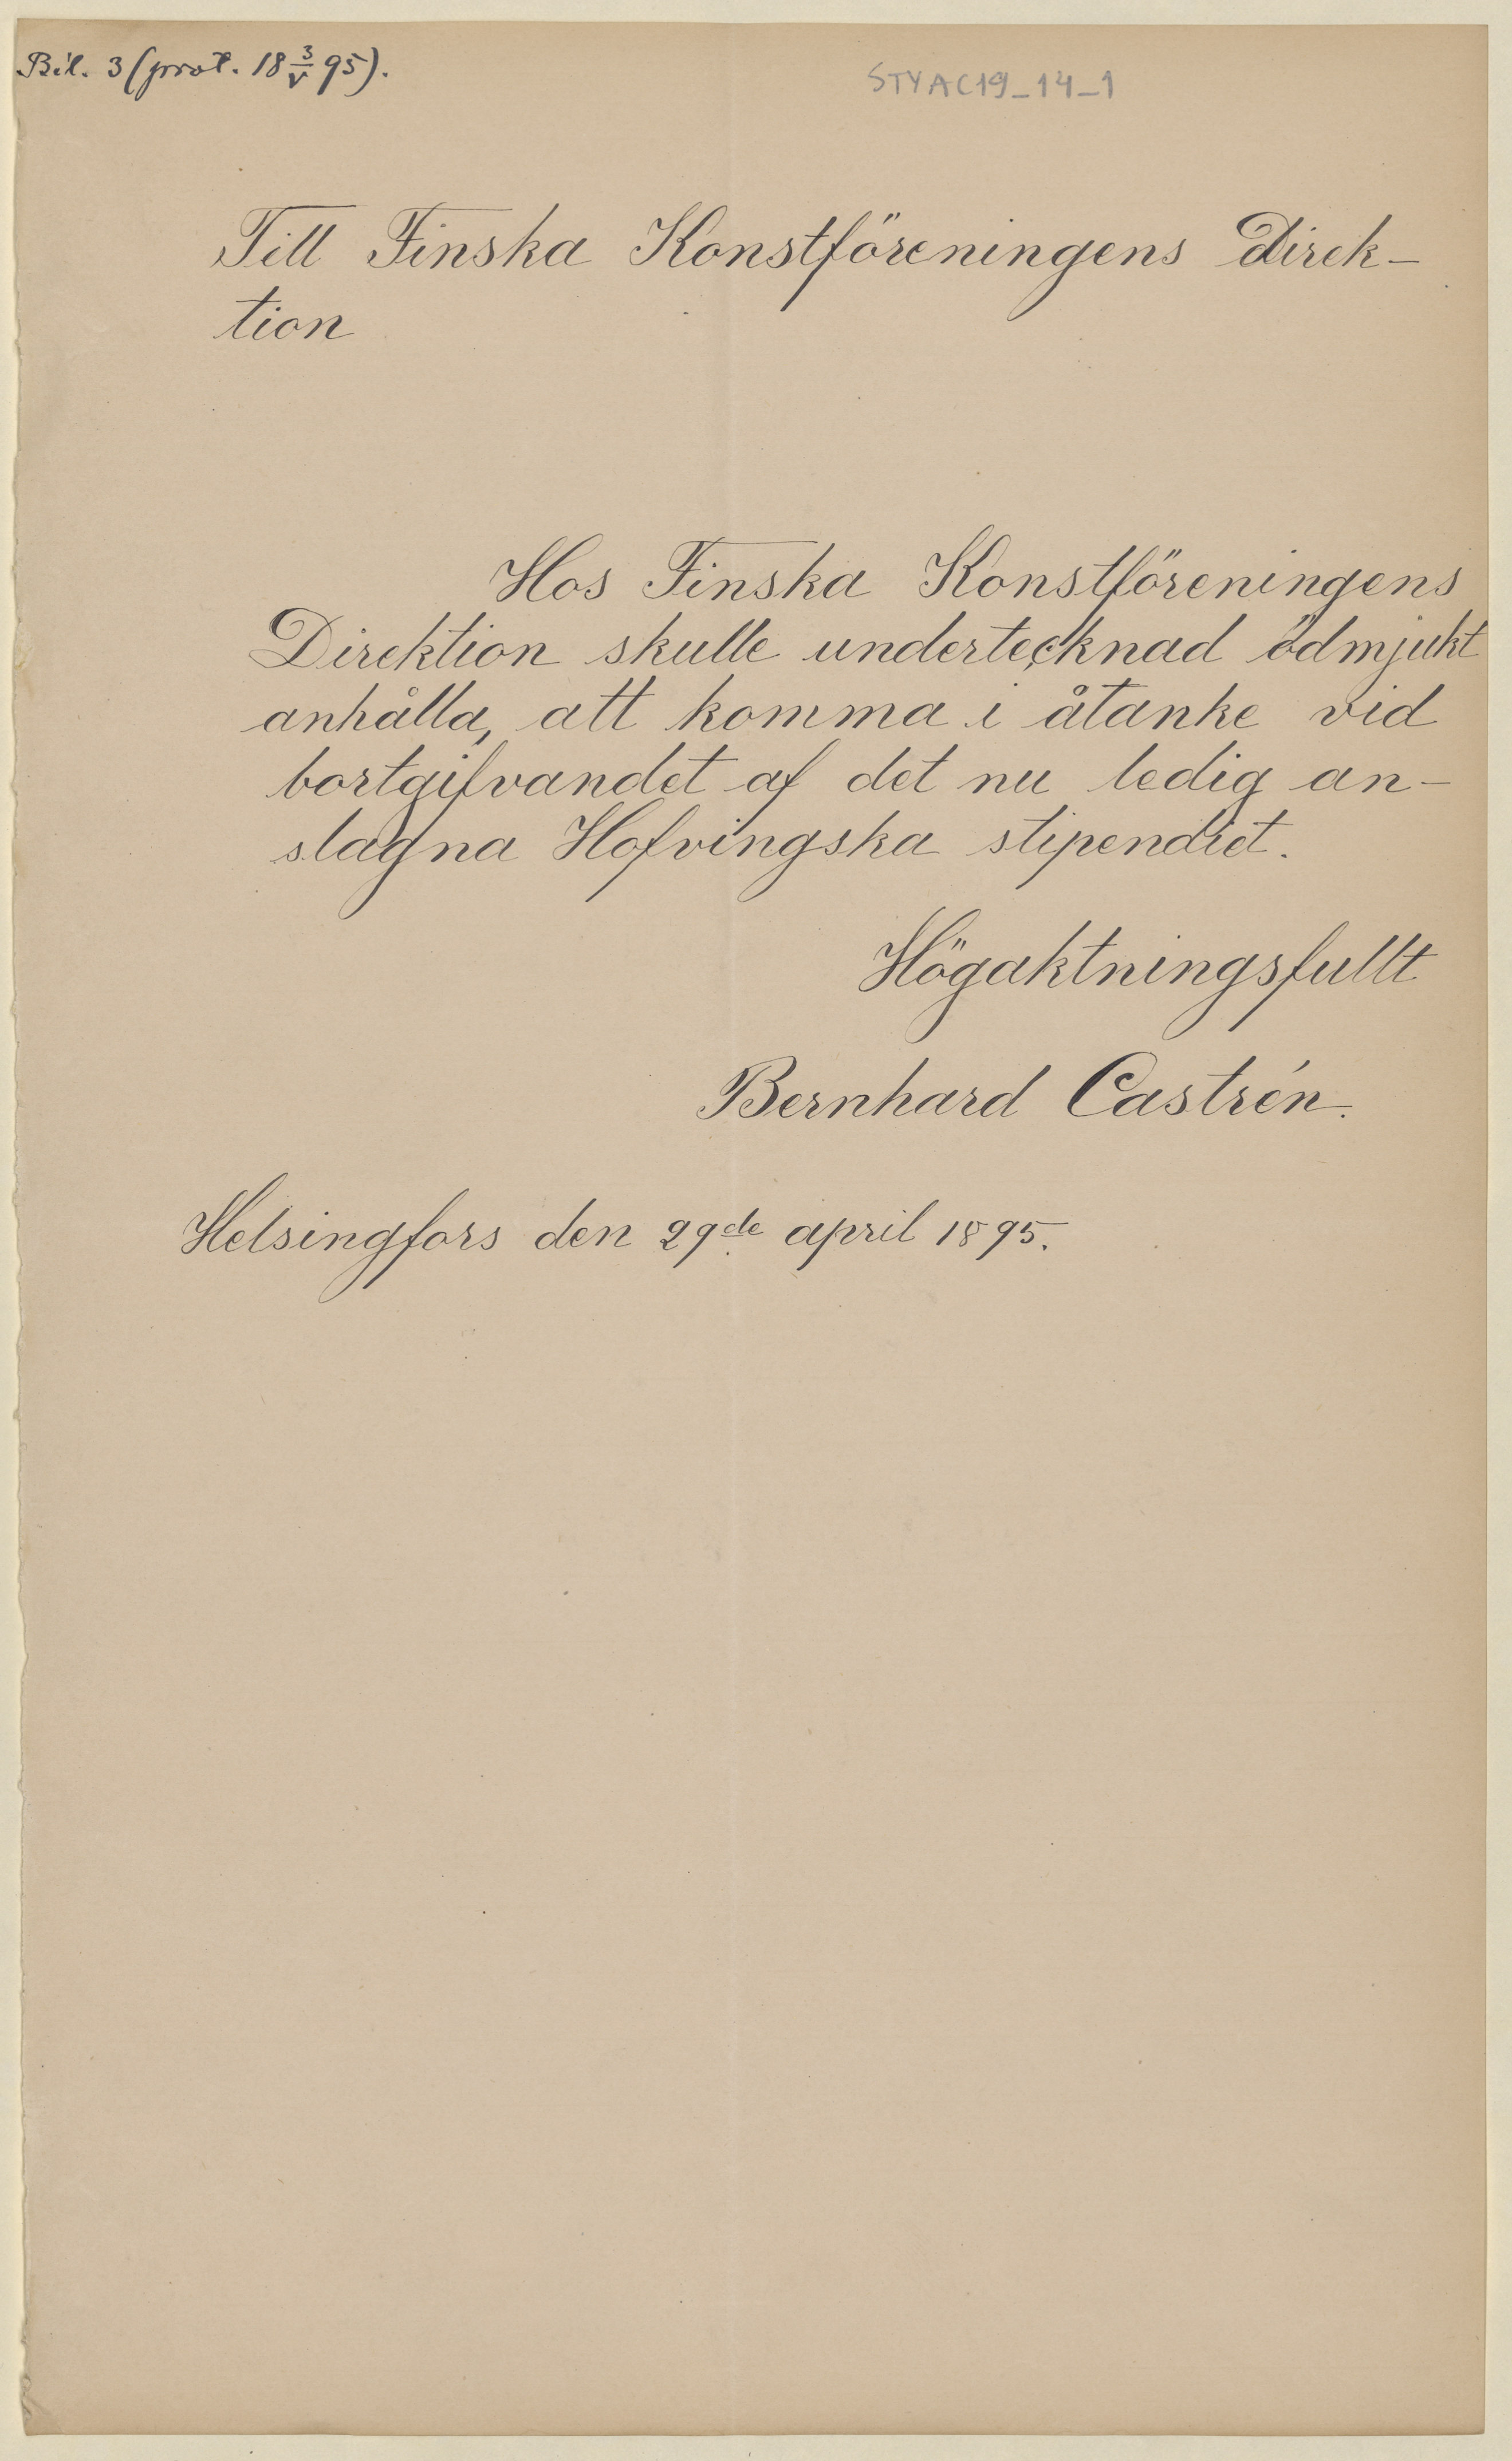 Bil. 3 (prot. 18 3/V 95).
STYAC19_14_1
Till Finska Konstföreningens Direk-
tion
Hos Finska Konstföreningens
Direktion skulle undertecknad ödmjukt
anhålla, att komma i åtanke vid
bortgifvandet af det nu ledig an-
slagna Hofvingska stipendiet.
Högaktningsfullt
Bernhard Castrén.
Helsingfors den 29de april 1895.